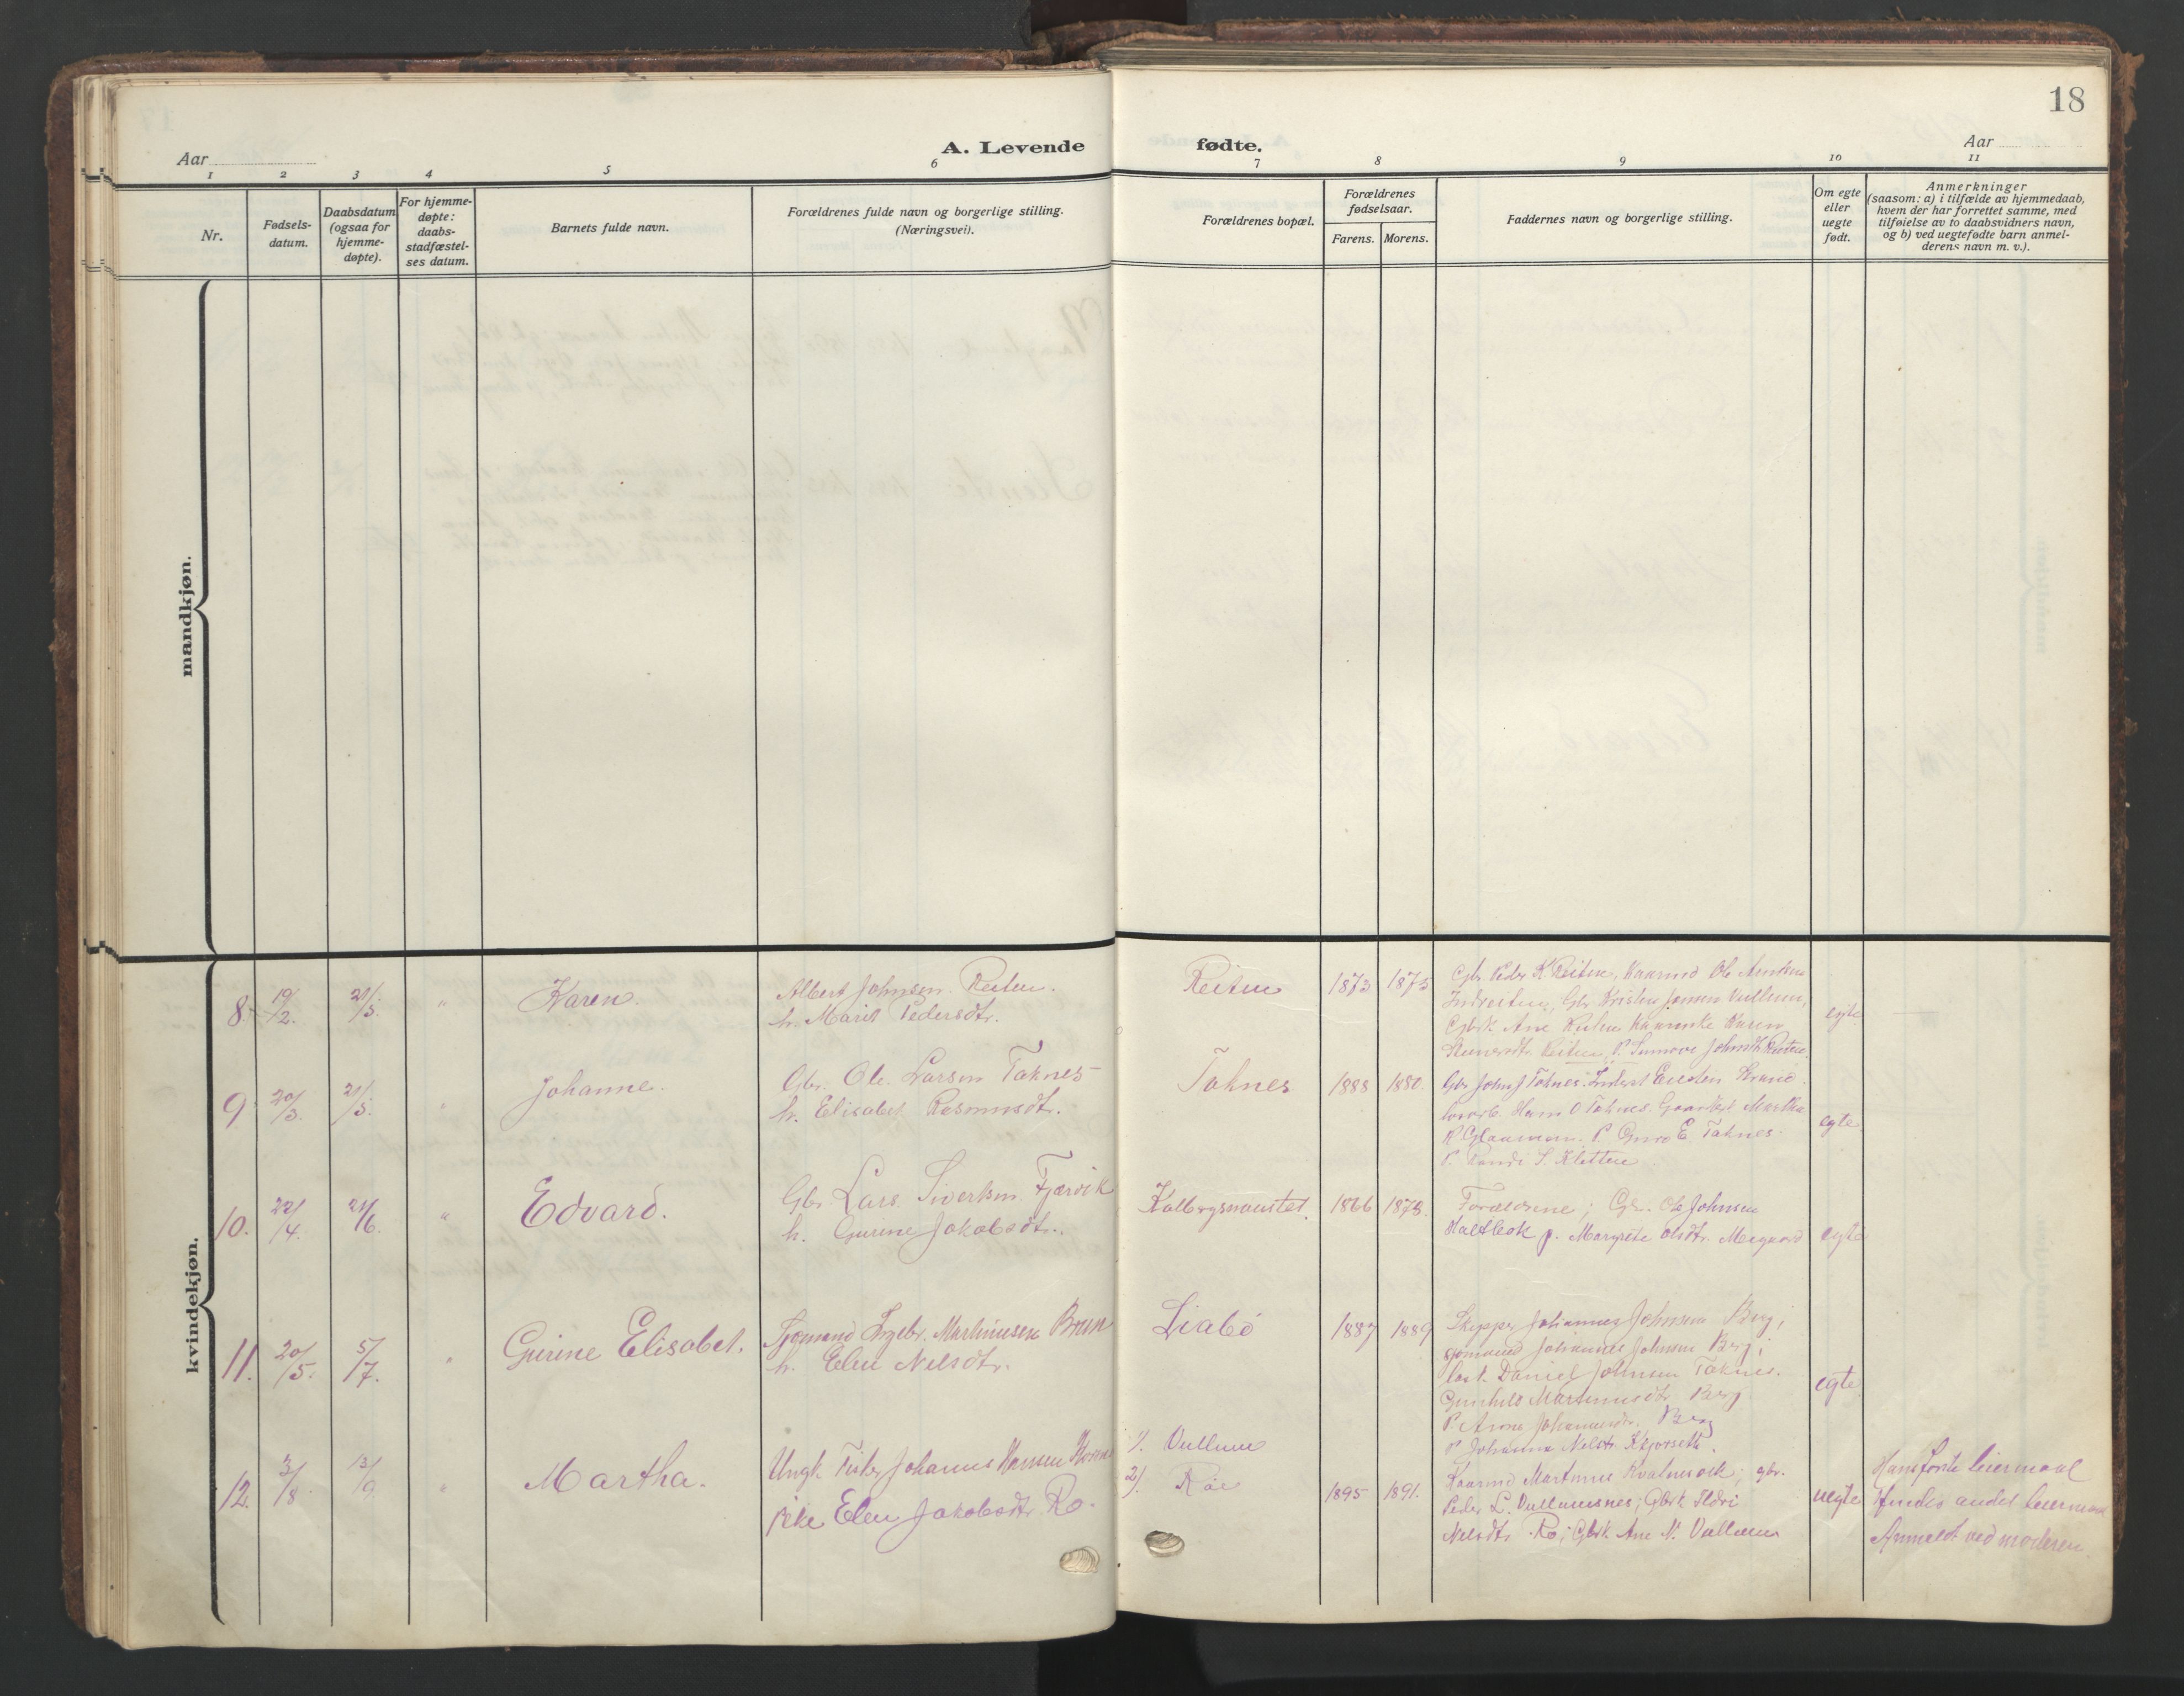 18
Aar
A. Levende
fødte.
Aar
1 2 3 4 5 6 7 8 9 10 11
Nr.
Fødsels-
datum.
Daabsdatum
(ogsaa for
hjemme-
døpte).
For hjemme-
døpte:
daabs-
stadfæstel-
ses datum.
Barnets fulde navn.
Forældrenes fulde navn og borgerlige stilling.
(Næringsvei).
Forældrenes bopæl.
Forældrenes
fødselsaar.
Farens. Morens.
Faddernes navn og borgerlige stilling.
Om egte
eller
uegte
født.
Anmerkninger
(saasom: a) i tilfælde av hjemmedaab,
hvem der har forrettet samme, med
tilføielse av to daabsvidners navn,
og b) ved uegtefødte barn anmel-
derens navn m. v.).
mandkjøn.
kvindekjøn.
8. 19/2. 21/5. " Karen.
Albert Johnsen Reiten.
h. Marit Pedersdtr.
Reiten 1873 1875
Gbr. Peder K. Reiten, Kaarmd Ole
Gbr Kristen Vullum,
Gbrk Ane Reiten Karen
Reiten, P. Johnsdtr Reiten.
egte
9. 20/3. 21/5. " Johanne.
Gbr. Ole Larsen Taknes
h. Elisabet Rasmusdt.
Taknes 1888 1880.
Gbr John J Taknes. Eilesten
Hans O Taknes. Martha
P Guro E. Taknes.
P. Randi S. Kletten
egte.
10. 22/4. 21/6. " Edvard.
Gbr. Lars Sivertsen Fjærvik
h. Gurine Jakobsdtr.
Kalbrygsnaustet. 1866 1873.
Forældrene; Gbr. Ole Johnsen
p. Margrete Olsdtr.
egte
11. 20/5. 5/7. " Gurine Elisabet.
Sjømand Ingebr. Martinusen Brun
h. Elen Nelsdtr.
Liabø 1887 1889
Skipper Johannes Johnsen Berg;
sjømand Johannes Johnsen Berg;
Daniel Johnsen Taknes.
Gunhild Martinusdtr Berg
P. Anne Johannesdtr. Berg
P. Johanna Nelsdtr.
egte
12. 3/8. 13/9. " Martha.
Ungk. Fisker Johannes Hansen
pike Elen Jakobsdtr Rø.
1). Vullum
2). Røe
1895 1891.
Kaarmd Martinus Kvalnesvik; gbr.
Peder L. Vullumsnes; Gbrk Ildri
Nelsdtr Rø; Gbrk Ane N. Vullum
uegte
Hans første leiermaal
Hendes andet leiermaal
Anmeldt ved moderen